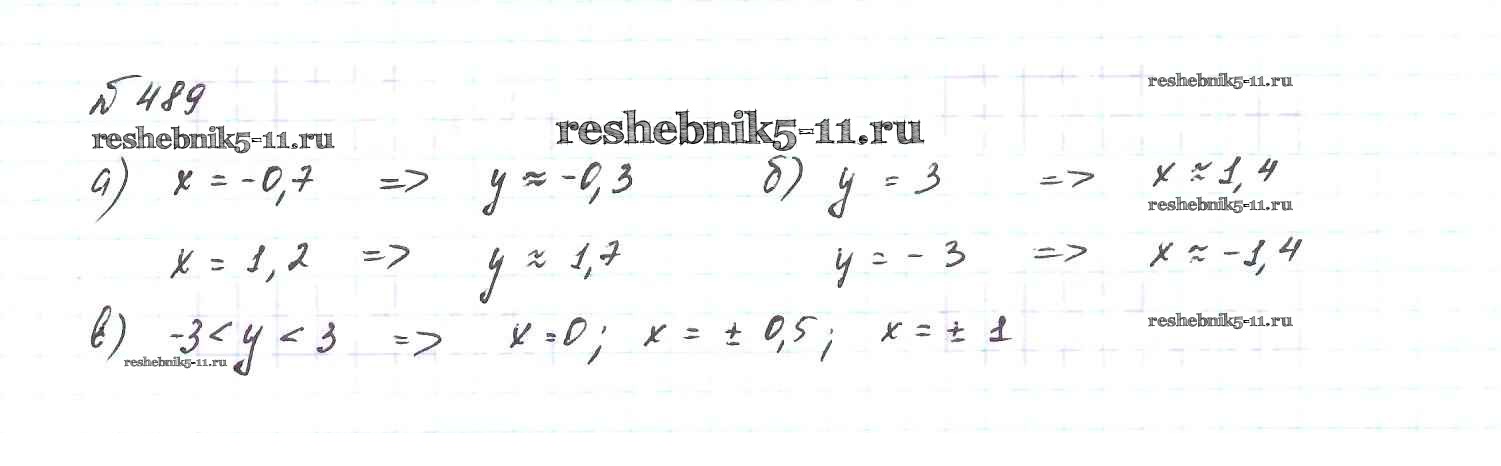 № 489
reshebnik5-11.ru
reshebnik5-11.ru
reshebnik5-11.ru
а) x = -0,7 => y ≈ -0,3 б) y = 3 => x ≈ 1,4
reshebnik5-11.ru
x = 1,2 => y ≈ 1,7 y = -3 => x ≈ -1,4
в) -3 < y < 3 => x = 0; x = ± 0,5; x = ± 1
reshebnik5-11.ru
reshebnik5-11.ru